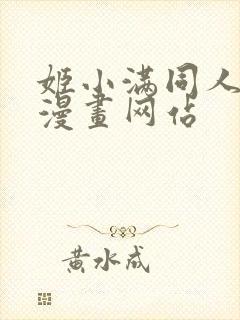 姬小满同人
漫畫网佔
黄水成